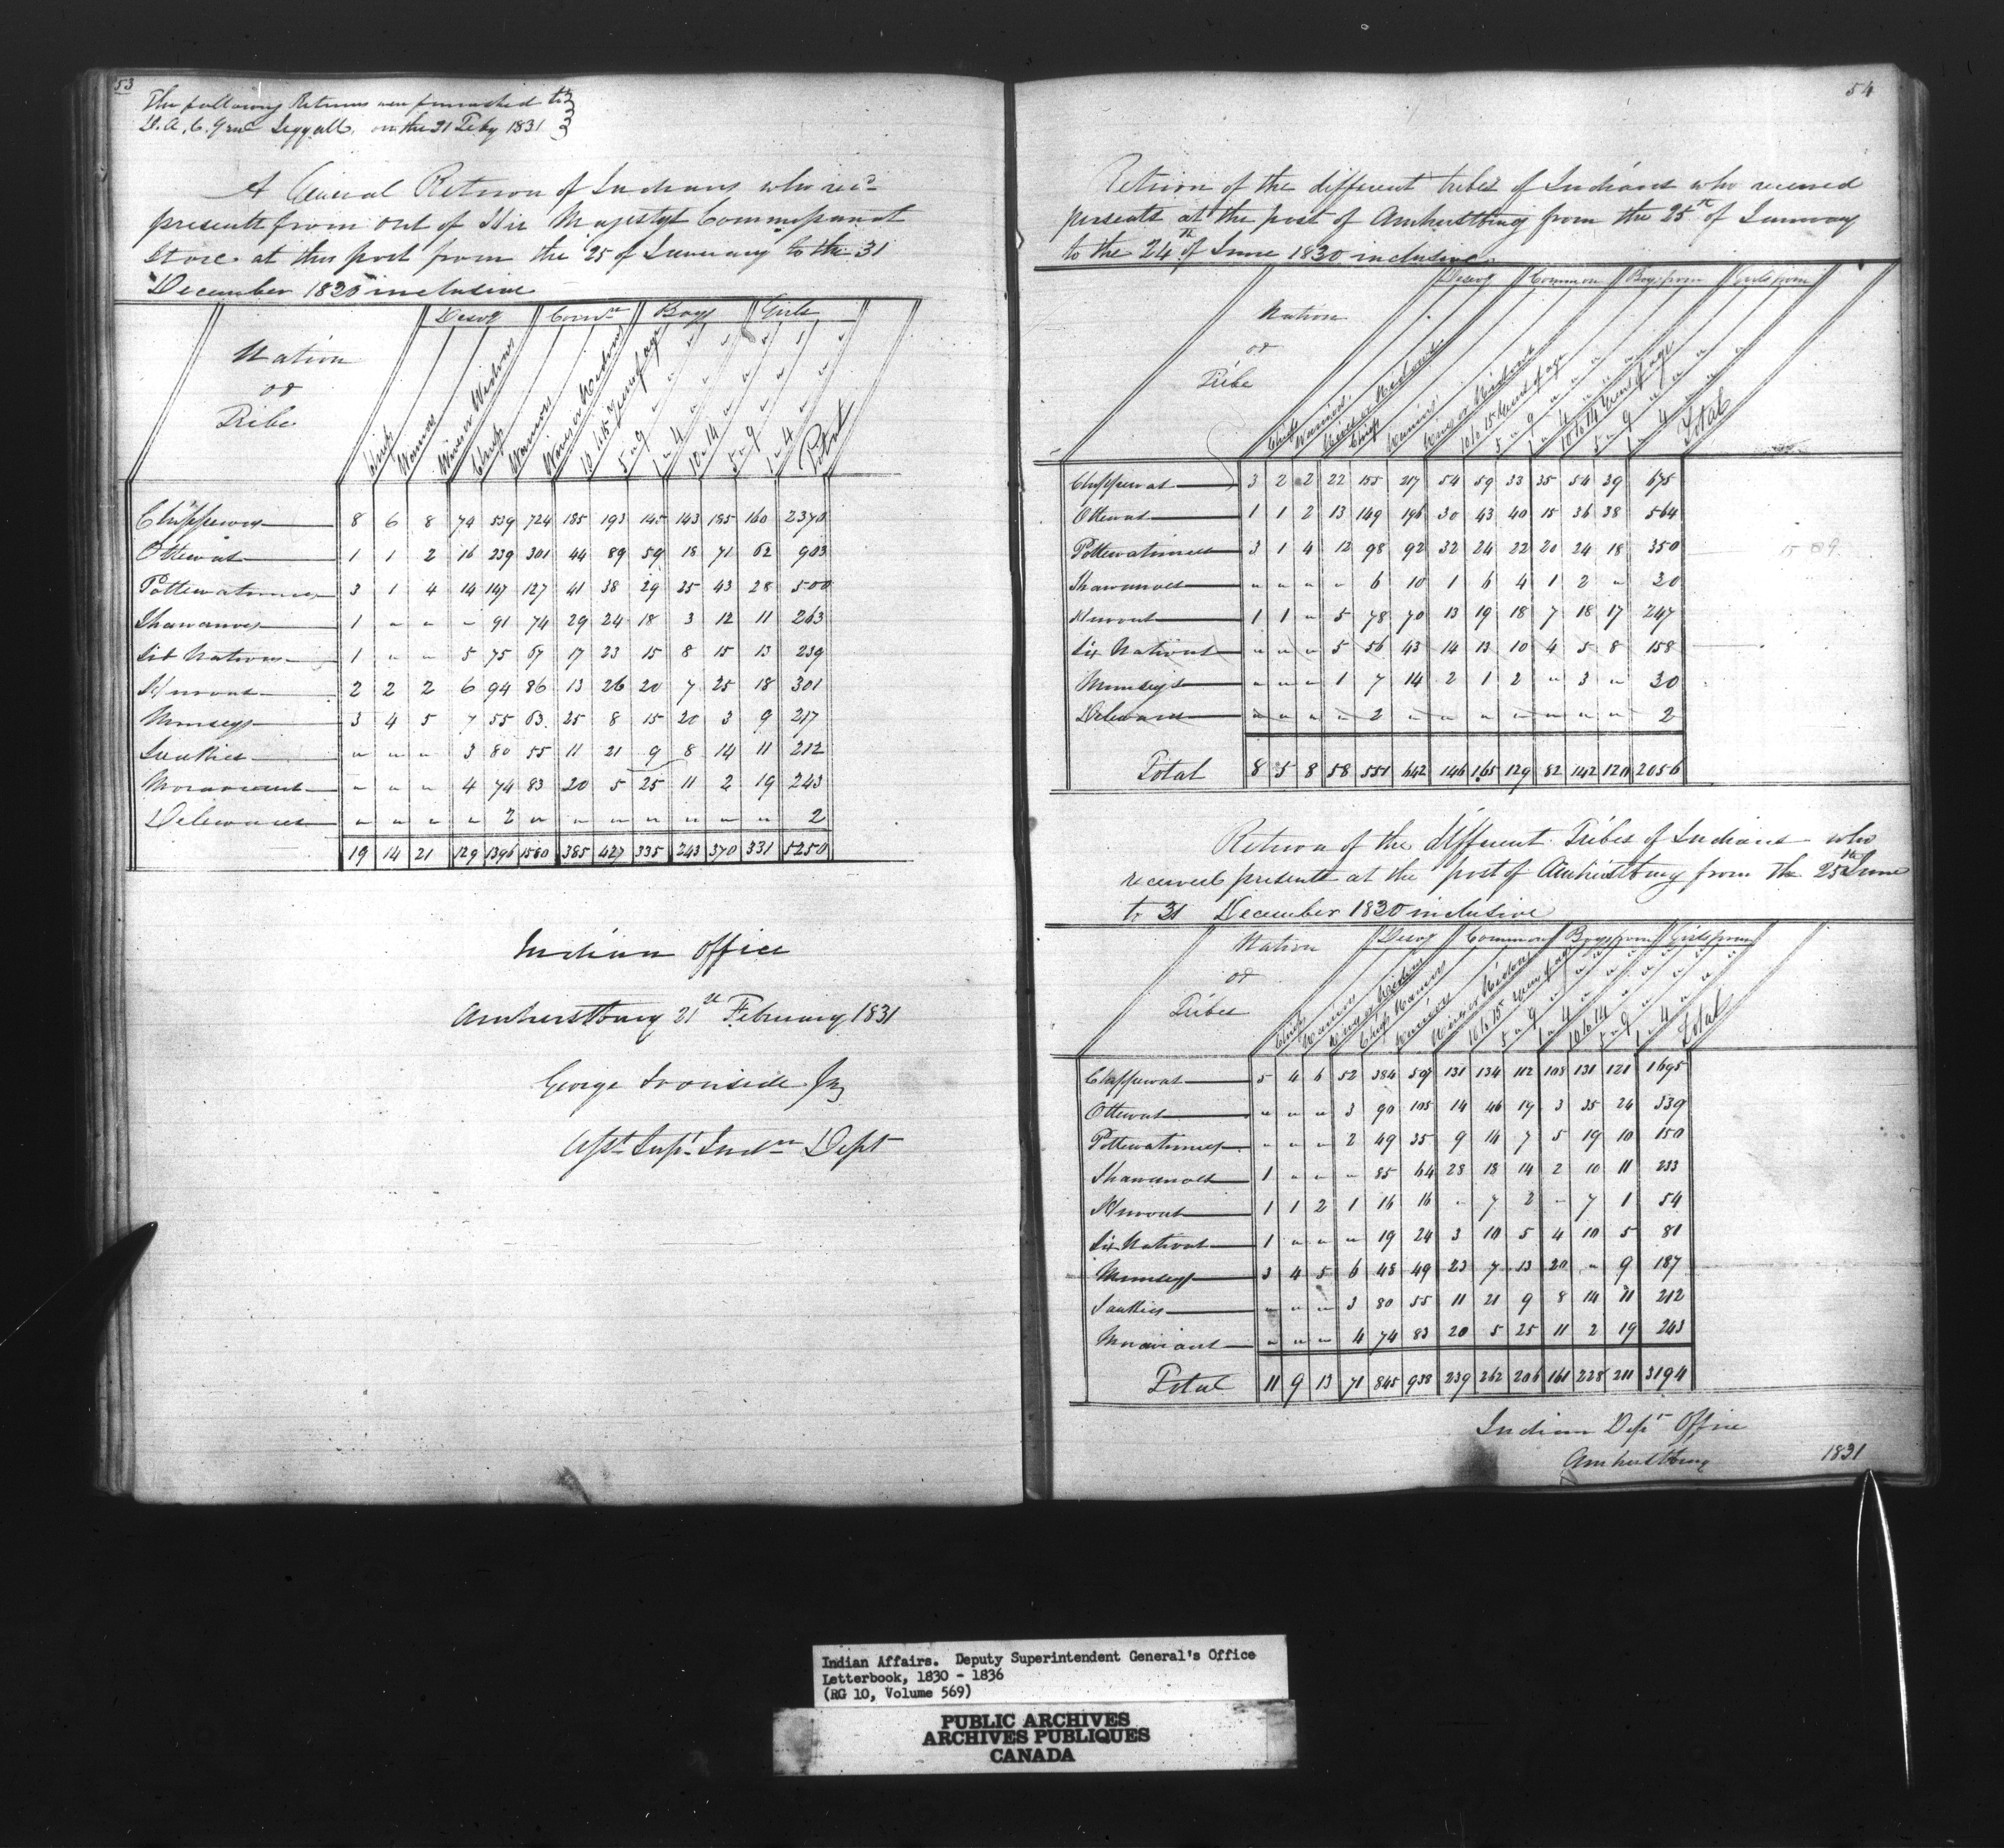 53
The following Returns were furnished to
D. A. C. Genl Leggatt, on the 21 Feby 1831
A General Return of Indians who recd
presents from out of His Majestys Commissariat
Store at this post from the 25 of January to the 31
December 1830 inclusive
Nation or Tribe | Desg | Comn | Boys | Girls
Chiefs | Warriors | Wives or Widows | Chiefs | Warriors | Wives or Widows | 10 to 15 Years of age | 5 " 9 | 1 " 4 | 10 " 14 | 5 " 9 | 1 " 4 | Total
Chippewas 8 6 8 74 539 724 185 193 145 143 185 160 2370
Ottewas 1 1 2 16 239 301 44 89 59 18 71 62 903
Pottewatimies 3 1 4 14 147 127 41 38 29 25 43 28 500
Shawanoes 1 " " " 91 74 29 24 18 3 12 11 263
Six Nations 1 " " 5 75 67 17 23 15 8 15 13 239
Hurons 2 2 2 6 94 86 13 26 20 7 25 18 301
Munseys 3 4 5 7 55 63 25 8 15 20 3 9 217
Saukies " " " 3 80 55 11 21 9 8 14 11 212
Moravians " " " 4 74 83 20 5 25 11 2 19 243
Delewares " " " " 2 " " " " " " " 2
19 14 21 129 1396 1580 385 427 335 243 370 331 5250
Indian Office
Amherstburg 21st February 1831
George Ironside Jr
Asst Supt Indn Dept
54
Return of the different tribes of Indians who received
presents at the post of Amherstburg from the 25th of January
to the 24th of June 1830 inclusive
Nation or Tribe | Desg | Common | Boys from | Girls from
Chiefs | Warriors | Wives or Widows | Chiefs | Warriors | Wives or Widows | 10 to 15 Years of age | 5 " 9 | 1 " 4 | 10 to 14 Years of age | 5 " 9 | 1 " 4 | Total
Chippewas 3 2 2 22 155 217 54 59 33 35 54 39 675
Ottewas 1 1 2 13 149 196 30 43 40 15 36 38 564
Pottewatimies 3 1 4 12 98 92 32 24 22 20 24 18 350
15 89
Shawanoes " " " " 6 10 1 6 4 1 2 " 30
Hurons 1 1 " 5 78 70 13 19 18 7 18 17 247
Six Nations " " " 5 56 43 14 13 10 4 5 8 158
Munseys " " " 1 7 14 2 1 2 " 3 " 30
Delewares " " " " 2 " " " " " " " 2
Total 8 5 8 58 551 642 146 165 129 82 142 120 2056
Return of the different Tribes of Indians who
received presents at the post of Amherstburg from the 25th June
to 31 December 1830 inclusive
Nation or Tribes | Desg | Common | Boys from | Girls from
Chiefs | Warriors | Wives or Widows | Chiefs | Warriors | Wives or Widows | 10 to 15 Years of age | 5 " 9 | 1 " 4 | 10 to 14 | 5 " 9 | 1 " 4 | Total
Chippewas 5 4 6 52 384 507 131 134 112 108 131 121 1695
Ottewas " " " 3 90 105 14 46 19 3 35 24 339
Pottewatimies " " " 2 49 35 9 14 7 5 19 10 150
Shawanoes 1 " " " 85 64 28 18 14 2 10 11 233
Hurons 1 1 2 1 16 16 " 7 2 " 7 1 54
Six Nations 1 " " " 19 24 3 10 5 4 10 5 81
Munseys 3 4 5 6 48 49 23 7 13 20 " 9 187
Saukies " " " 3 80 55 11 21 9 8 14 11 212
Moravians " " " 4 74 83 20 5 25 11 2 19 243
Total 11 9 13 71 845 938 239 262 206 161 228 211 3194
Indian Dept Office
Amherstburg 1831
Indian Affairs. Deputy Superintendent General's Office
Letterbook, 1830 - 1836
(RG 10, Volume 569)
PUBLIC ARCHIVES
ARCHIVES PUBLIQUES
CANADA